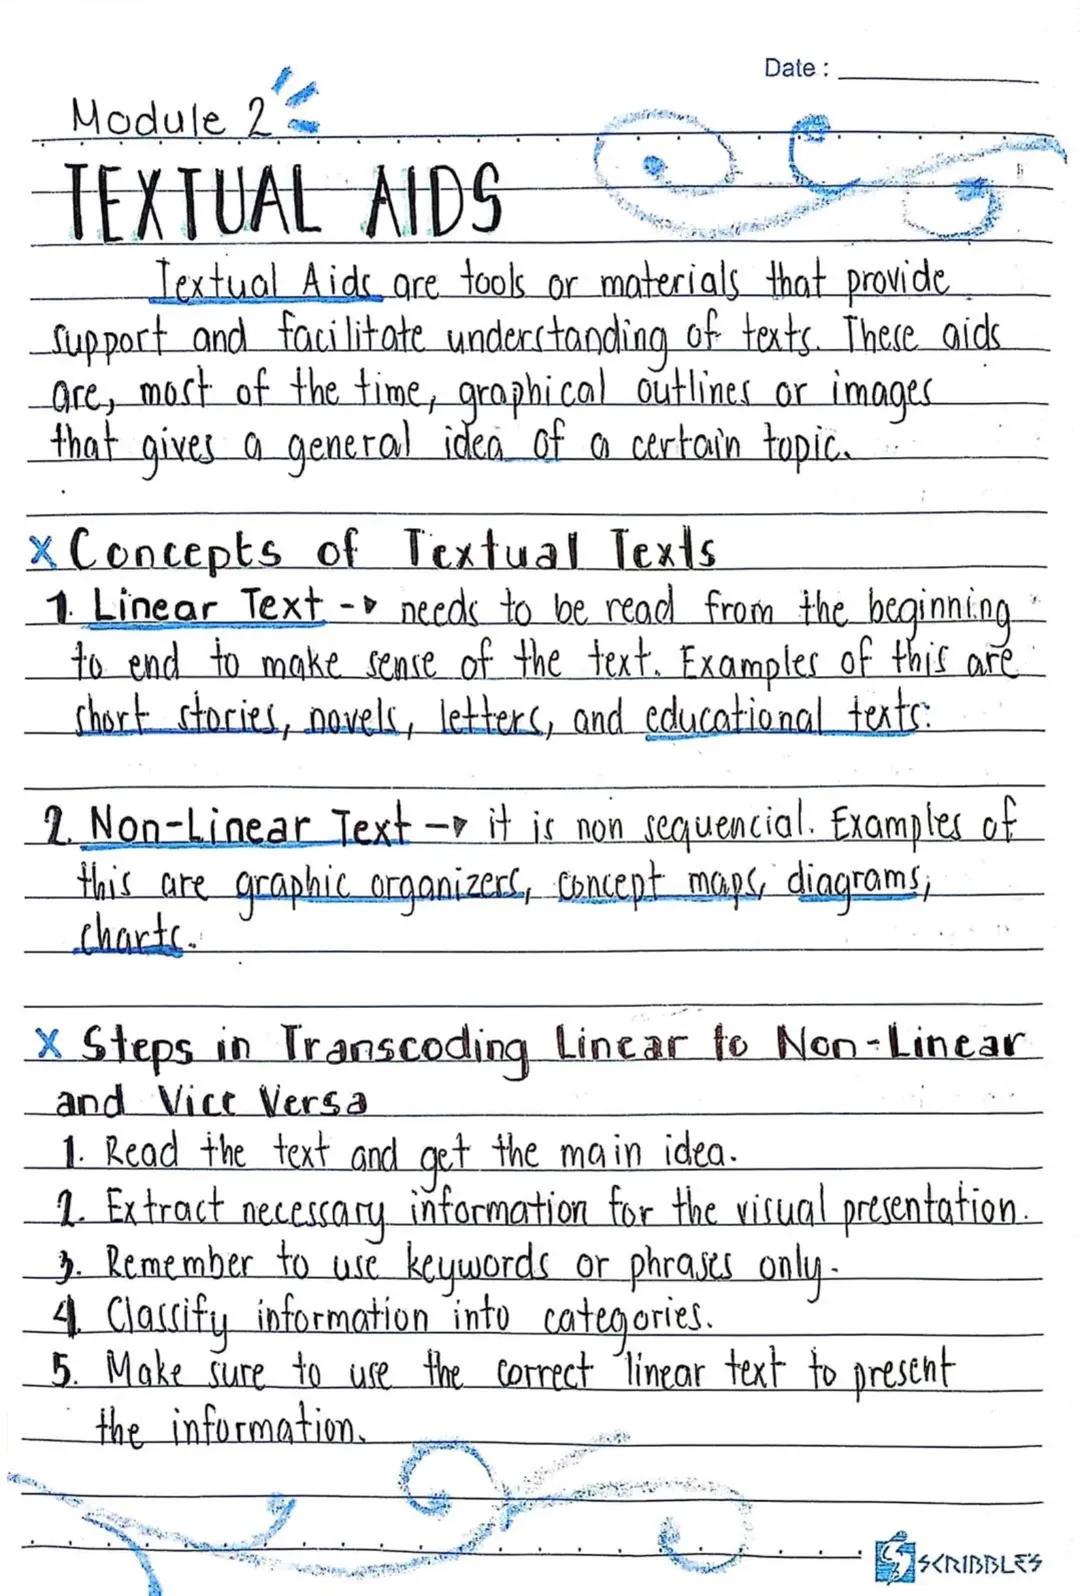 Date :
Module 2
TEXTUAL AIDS
Textual Aids are tools or materials that provide
support and facilitate understanding of texts. These aids
are, most of the time, graphical outlines or images
that gives a general idea of a certain topic.
x Concepts of Textual Texts
1. Linear Text -→ needs to be read from the beginning
to end to make sense of the text. Examples of this are
short stories, novels, letters, and educational texts.
2. Non-Linear Text -→ it is non sequencial. Examples of
this are graphic organizers, concept maps, diagrams,
charts.
x Steps in Transcoding Linear to Non-Linear
and Vice Versa
1. Read the text and get the main idea.
2. Extract necessary information for the visual presentation.
3. Remember to use keywords or phrases only.
4. Classify information into categories.
5. Make sure to use the correct linear text to present
the information.
SCRIBBLES